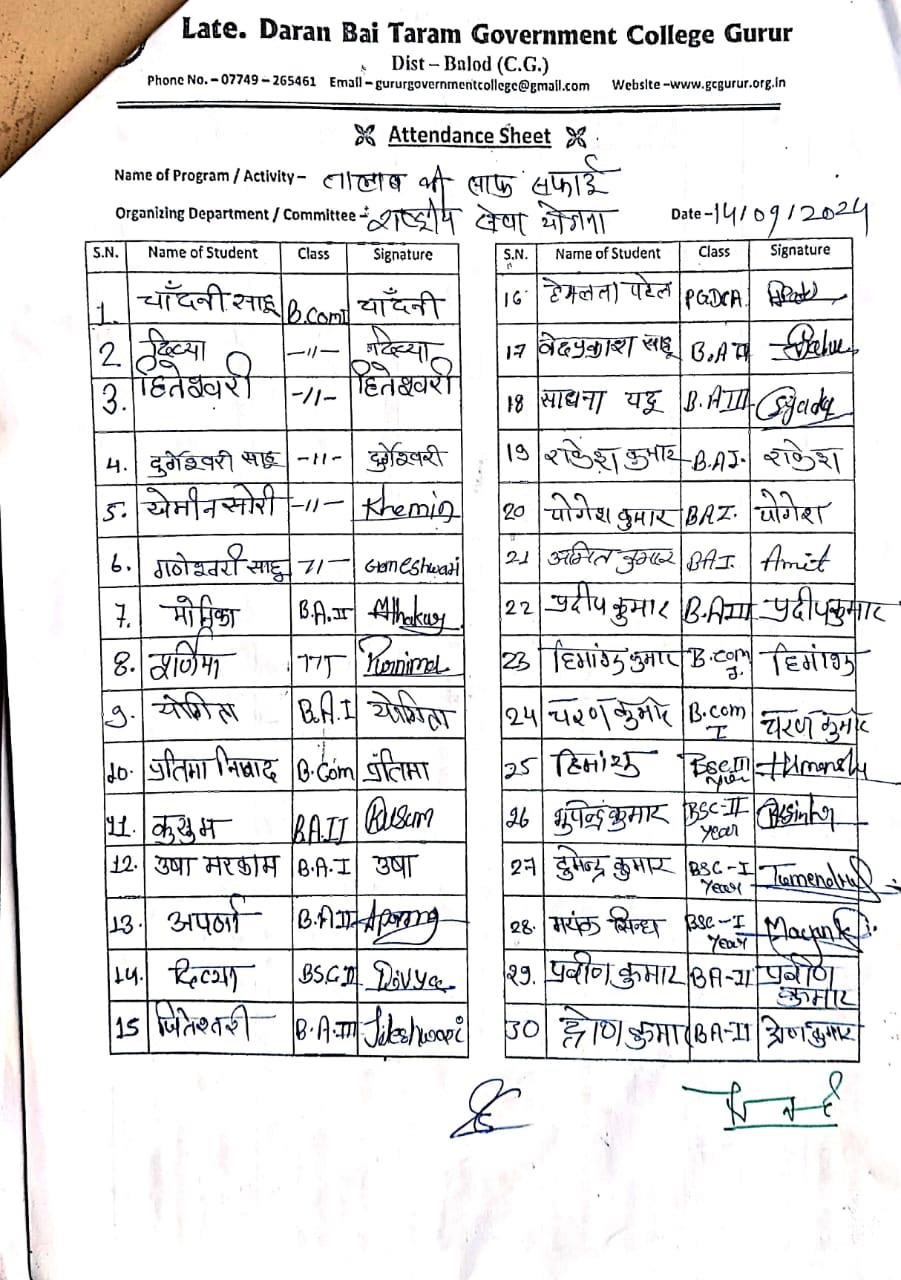 Late. Daran Bai Taram Government College Gurur
Dist – Balod (C.G.)
Phone No. – 07749 – 265461 Email – gururgovernmentcollege@gmail.com Website –www.gcgurur.org.in
Attendance Sheet
Name of Program / Activity– तालाब की साफ सफाई
Organizing Department / Committee – राष्ट्रीय सेवा योजना Date –14/09/2024
S.N. Name of Student Class Signature
1. चाँदनी साहू B.Com I चाँदनी
2 दिव्या –11– दिव्या
3. हितेश्वरी –11– हितेश्वरी
4. दुर्गेश्वरी साहू –11– दुर्गेश्वरी
5. खेमीन सोरी –11– Khemin
6. गणेश्वरी साहू 71– Ganeshwari
7. B.A.II AThakur
8. Purnima
9. योगिता B.A.I योगिता
10. प्रतिमा निषाद B.Com प्रतिमा
11. कुसुम B.A II Kusum
12. उषा मरकाम B.A-I उषा
13. अपर्णा B.A II Aparna
14. दिव्या BSC II Divya
15 जितेश्वरी B.A-III Jiteshwari
S.N. Name of Student Class Signature
16 हेमलता पटेल PGDCA
17 वेदप्रकाश साहू B.A Sahu
18 साधना यदु B.A III Syadu
19 राकेश कुमार B.A I. राकेश
20 योगेश कुमार BA I. योगेश
21 अमित कुमार BA I. Amit
22 प्रदीप कुमार B.A III प्रदीप कुमार
23 हिमांशु कुमार B.com हिमांशु
24 चरण कुमार B.com I चरण कुमार
25 हिमांशु Bsc III year Himanshu
26 भुपेन्द्र कुमार BSC-II year
27 डुमेन्द्र कुमार BSC-I Year
28. मयंक सिन्हा BSC-I Year Mayank
29. प्रवीण कुमार BA-II प्रवीण कुमार
30 द्रोण कुमार BA-II द्रोण कुमार